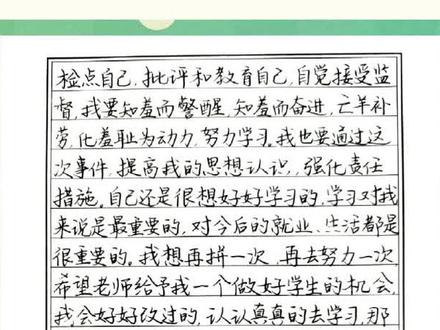 检点自己,批评和教育自己,自觉接受监
督,我要知羞而警醒,知羞而奋进,亡羊补
劳,化羞耻为动力,努力学习。我也要通过这
次事件,提高我的思想认识,强化责任
措施。自己还是很想好好学习的,学习对我
来说是最重要的,对今后的就业、生活都是
很重要的。我想再拼一次,再去努力一次
希望老师给予我一个做好学生的机会,
我会好好改过的,认认真真的去学习,那